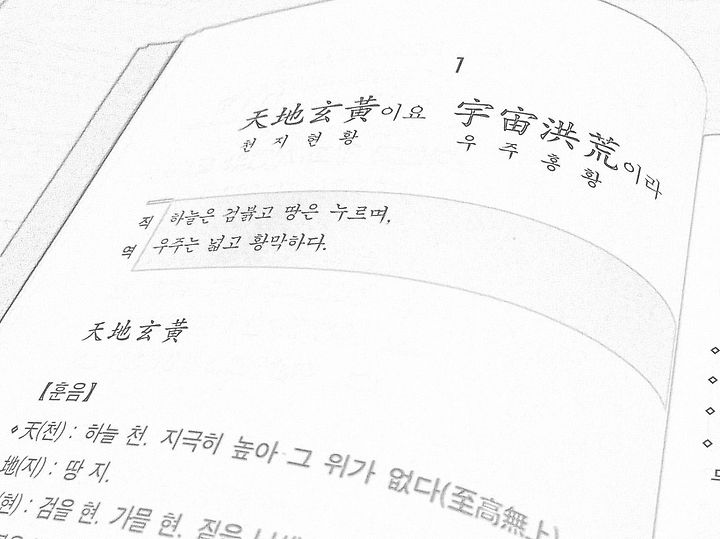 1
天地玄黃이요 宇宙洪荒이라
천지현황 우주홍황
직역 하늘은 검붉고 땅은 누르며,
우주는 넓고 황막하다.
天地玄黃
【훈음】
◇天(천) : 하늘 천. 지극히 높아 그 위가 없다(至高無上)
地(지) : 땅 지.
(현) : 검을 현. 가물 현. 짙은